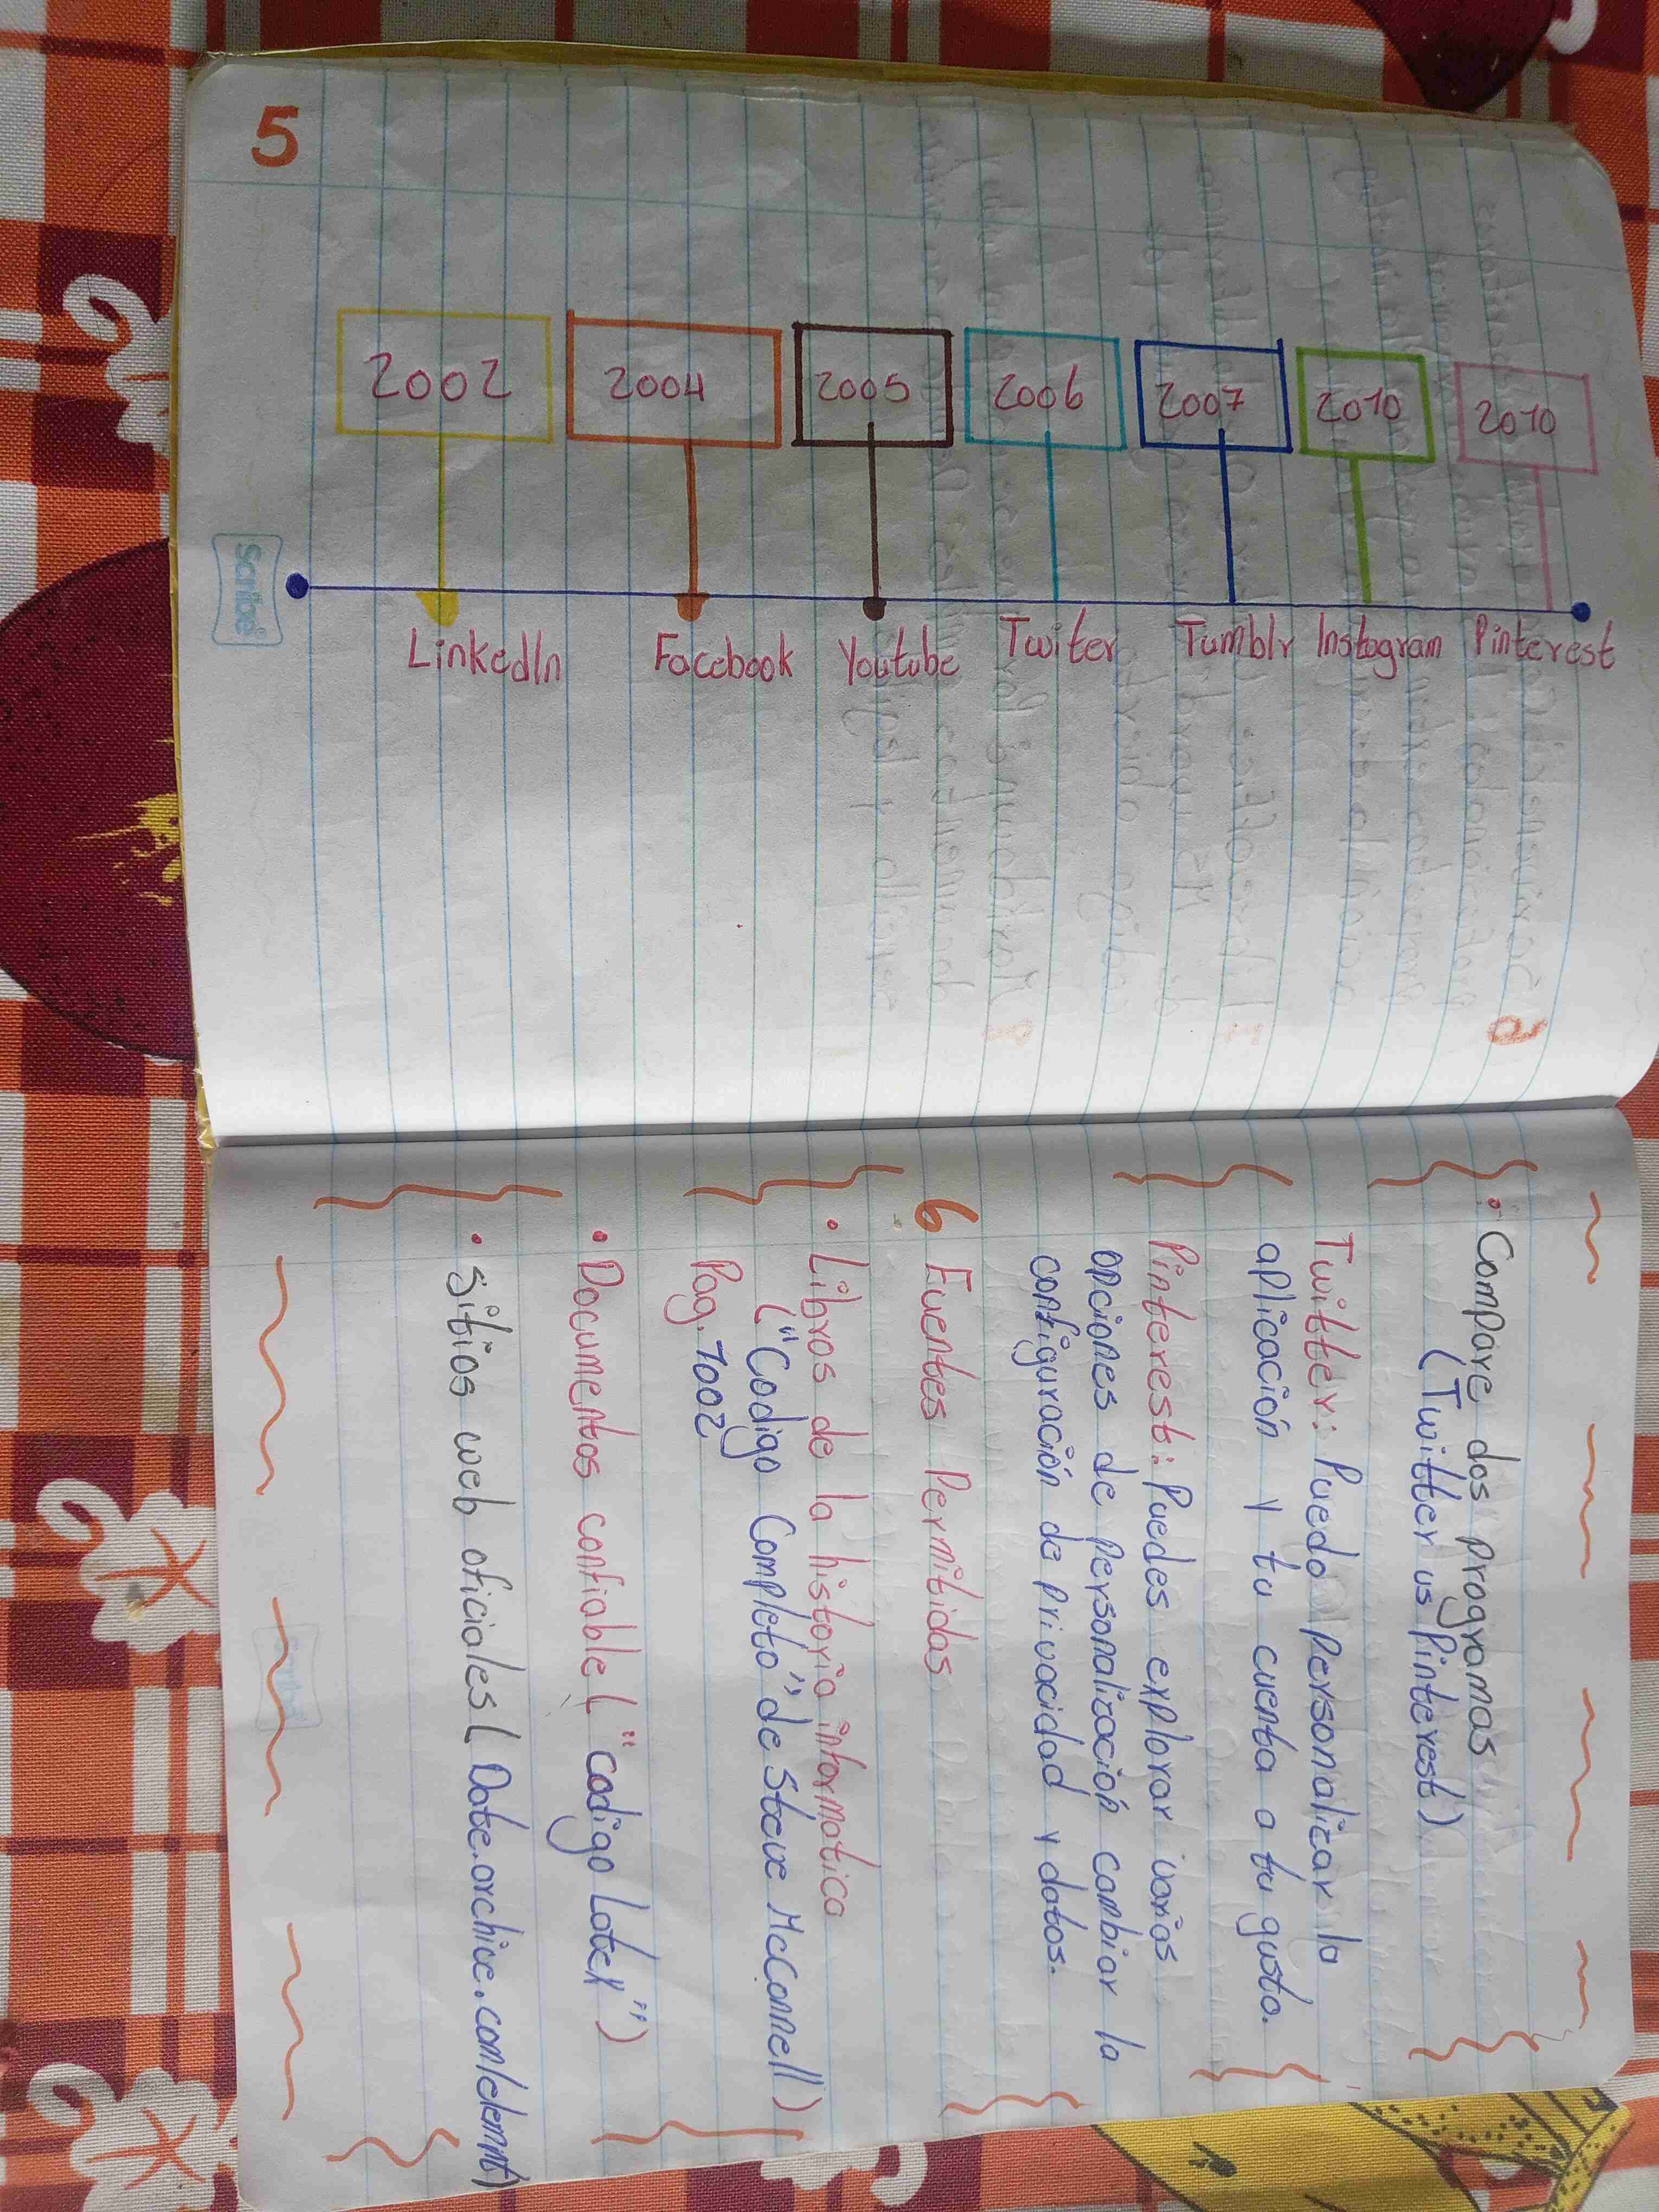 5
2002
2004
2005
2006
2007
2010
2010
LinkedIn
Facebook
Youtube
Twiter
Tumblr
Instagram
Pinterest
Scribe
• Compare dos programas
(Twitter us Pinterest)
Twitter: Puedo Personalizar la
aplicación y tu cuenta a tu gusto.
Pinterest: Puedes explorar varios
opciones de Personalización cambiar la
configuración de privacidad y datos.
6 Fuentes Permitidas
• Libros de la historia informatica
("Codigo Completo" de Steve McConnell)
Pag. 1002
• Documentos confiable ("codigo Latex")
• sitios web oficiales (Date.archive.com/elemnt)